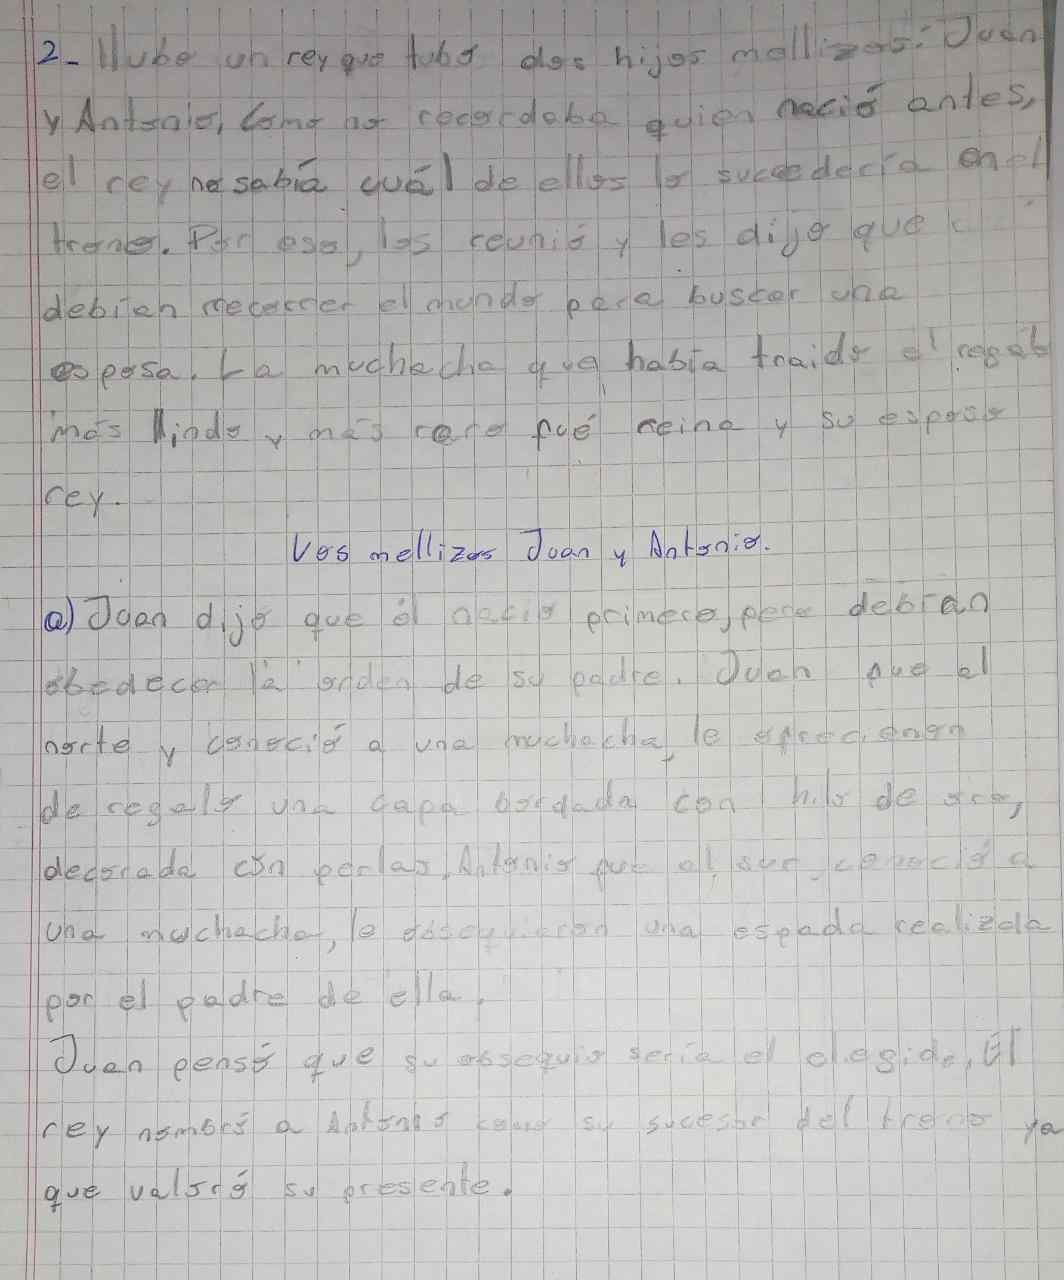 2- Hubo un rey que tubo dos hijos mellizos: Juan
y Antonio, Como no recordaba quien nació antes,
el rey no sabía cuál de ellos lo succedería en el
trono. Por eso, los reunió y les dijo que
debian recorrer el mundo para buscar una
esposa. La muchacha que había traido el regalo
más lindo y más raro fué reina y su esposo
rey.
Los mellizos Juan y Antonio.
a) Juan dijo que él nació primero, pero debían
obedecer la orden de su padre. Juan fue al
norte y conoció a una muchacha, le
de regalo una capa bordada con hilo de oro,
decorada con perlas, Antonio fue al sur, conoció a
una muchacha, le obsequiaron una espada realizada
por el padre de ella.
Juan pensó que su obsequio sería el elegido, El
rey nombró a Antonio como su sucesor del trono ya
que valoró su presente.